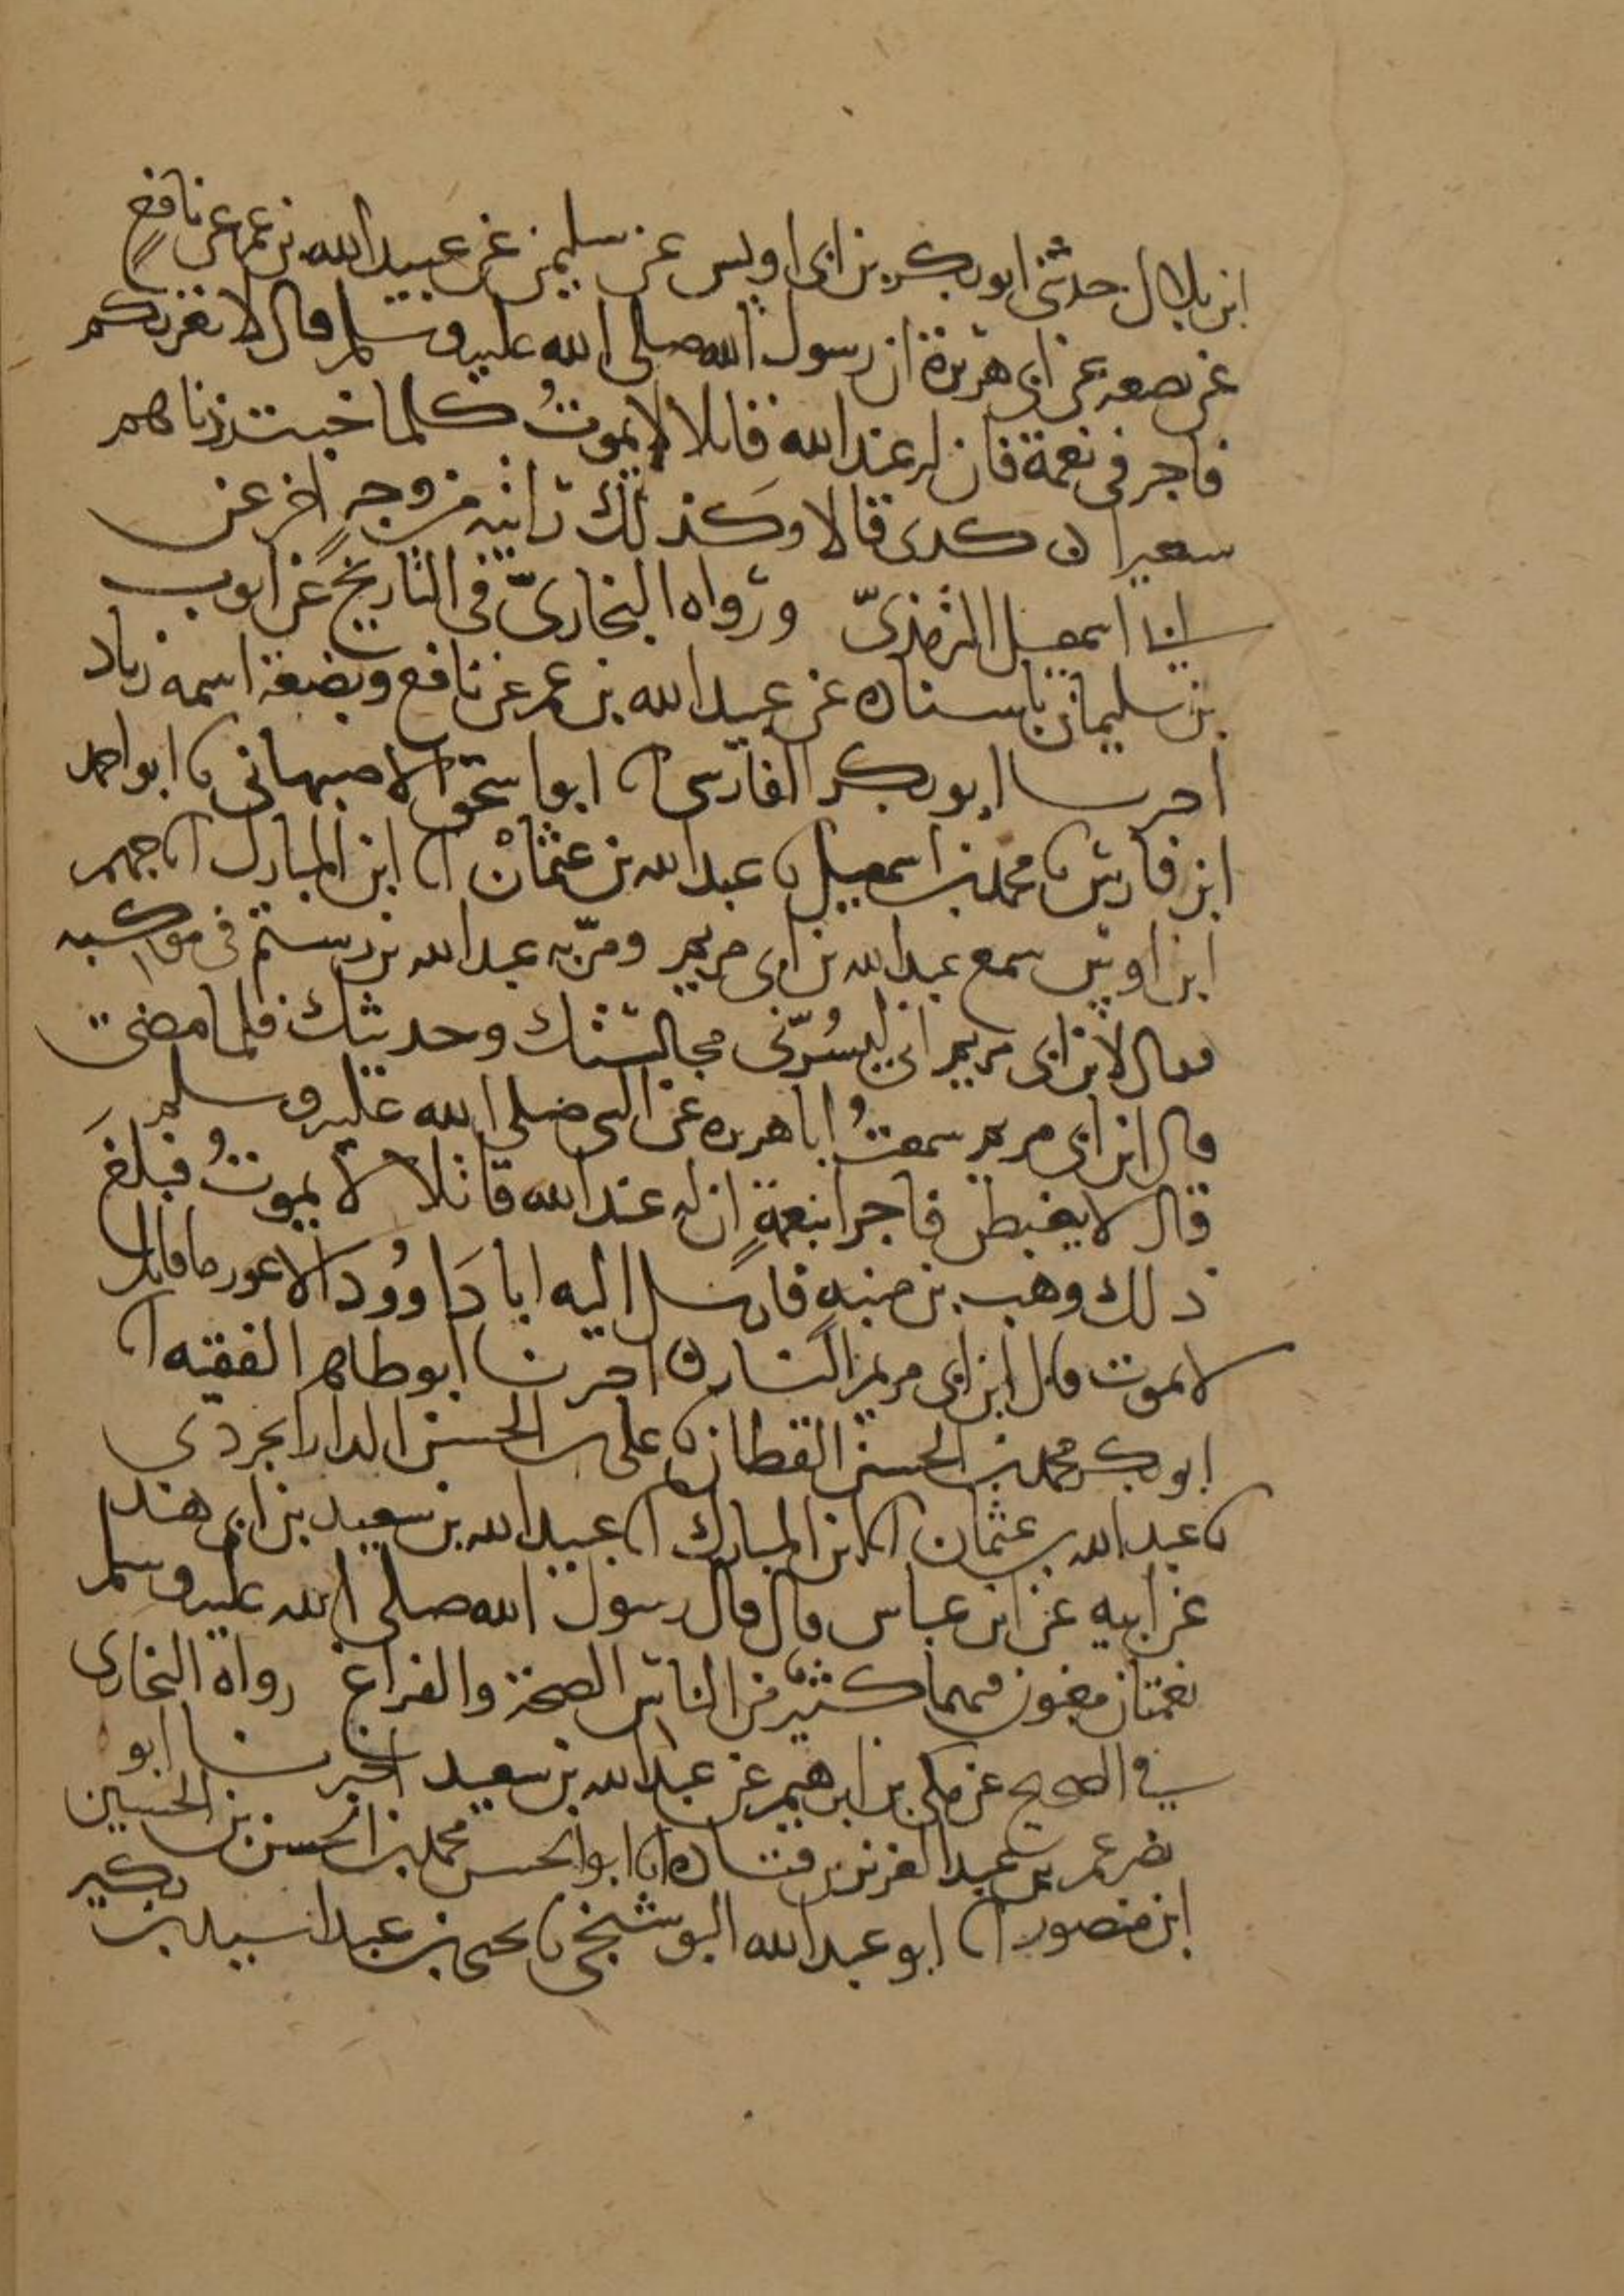 ابن بلال حدثني ابو بكر بن ابي اويس عن سليمن عن عبيد الله بن عمر عن نافع
عن بصعه عن ابي هريرة ان رسول الله صلى الله عليه وسلم قال لا تغرنكم
فاجر في نعمة فان له عند الله قاتلا لا يموت كلما خبت زدناهم
سعيرا ن كدى قالا وكذلك ثانيه من وجه اخر عن
ابي اسمعيل الترمذيّ ورواه البخاريّ في التاريخ عن ايوب
بن سليمان باسناده عن عبيد الله بن عمر عن نافع وبضعة اسمه زياد
اخبرنا ابو بكر الفارسي انا ابو اسحق الاصبهاني نا ابو احمد
ابن فارس نا محمد بن اسمعيل نا عبد الله بن عثمان انا ابن المبارك انا جهم
ابن اويس سمع عبد الله بن ابي مريم ومرّ به عبد الله بن رستم في مواكبه
فقال لابن ابي مريم اني ليسُرّني مجالستك وحديثك فلما مضى
قال ابن ابي مريم سمعتُ ابا هريره عن النبي صلى الله عليه وسلم
قال لا يغبطن فاجرا بنعمةٍ ان له عند الله قاتلا لا يموتُ فبلغَ
ذلك وهب بن منبه فارسل اليه ابا دَاوُودَ الاعور ما قاتل
لا يموت قال ابن ابي مريم النار ن اخبرنا ابو طاهر الفقيه انا
ابو بكر محمد بن الحسين القطان نا علي بن الحسن الدارابجردي
نا عبد الله بن عثمان انا ابن المبارك انا عبد الله بن سعيد بن ابي هند
عن ابيه عن ابن عباس قال قال رسول الله صلى الله عليه وسلم
نعمتان مغبون فيهما كثير من الناس الصحة والفراغ رواه البخاري
في الصحيح عن مكي بن ابرهيم عن عبد الله بن سعيد اخبرنا ابو
نصر عمر بن عبد العزيز بن قتاده انا ابو الحسن محمد بن الحسن بن الحسين
ابن منصور انا ابو عبد الله البوشنجي نا يحيى بن عبد الله بن بكير